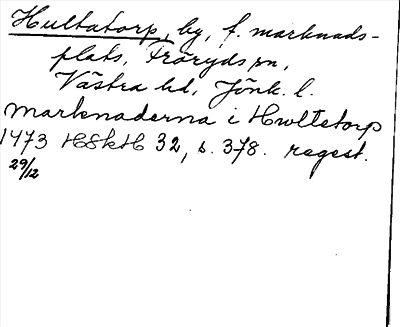 Hultatorp, by, f. marknads-
plats, Fröryds sn,
Västra hd, Jönk. l.
marknaderna i Hwltetorp
1473 HSkH 32, s. 378. regest.
29/12